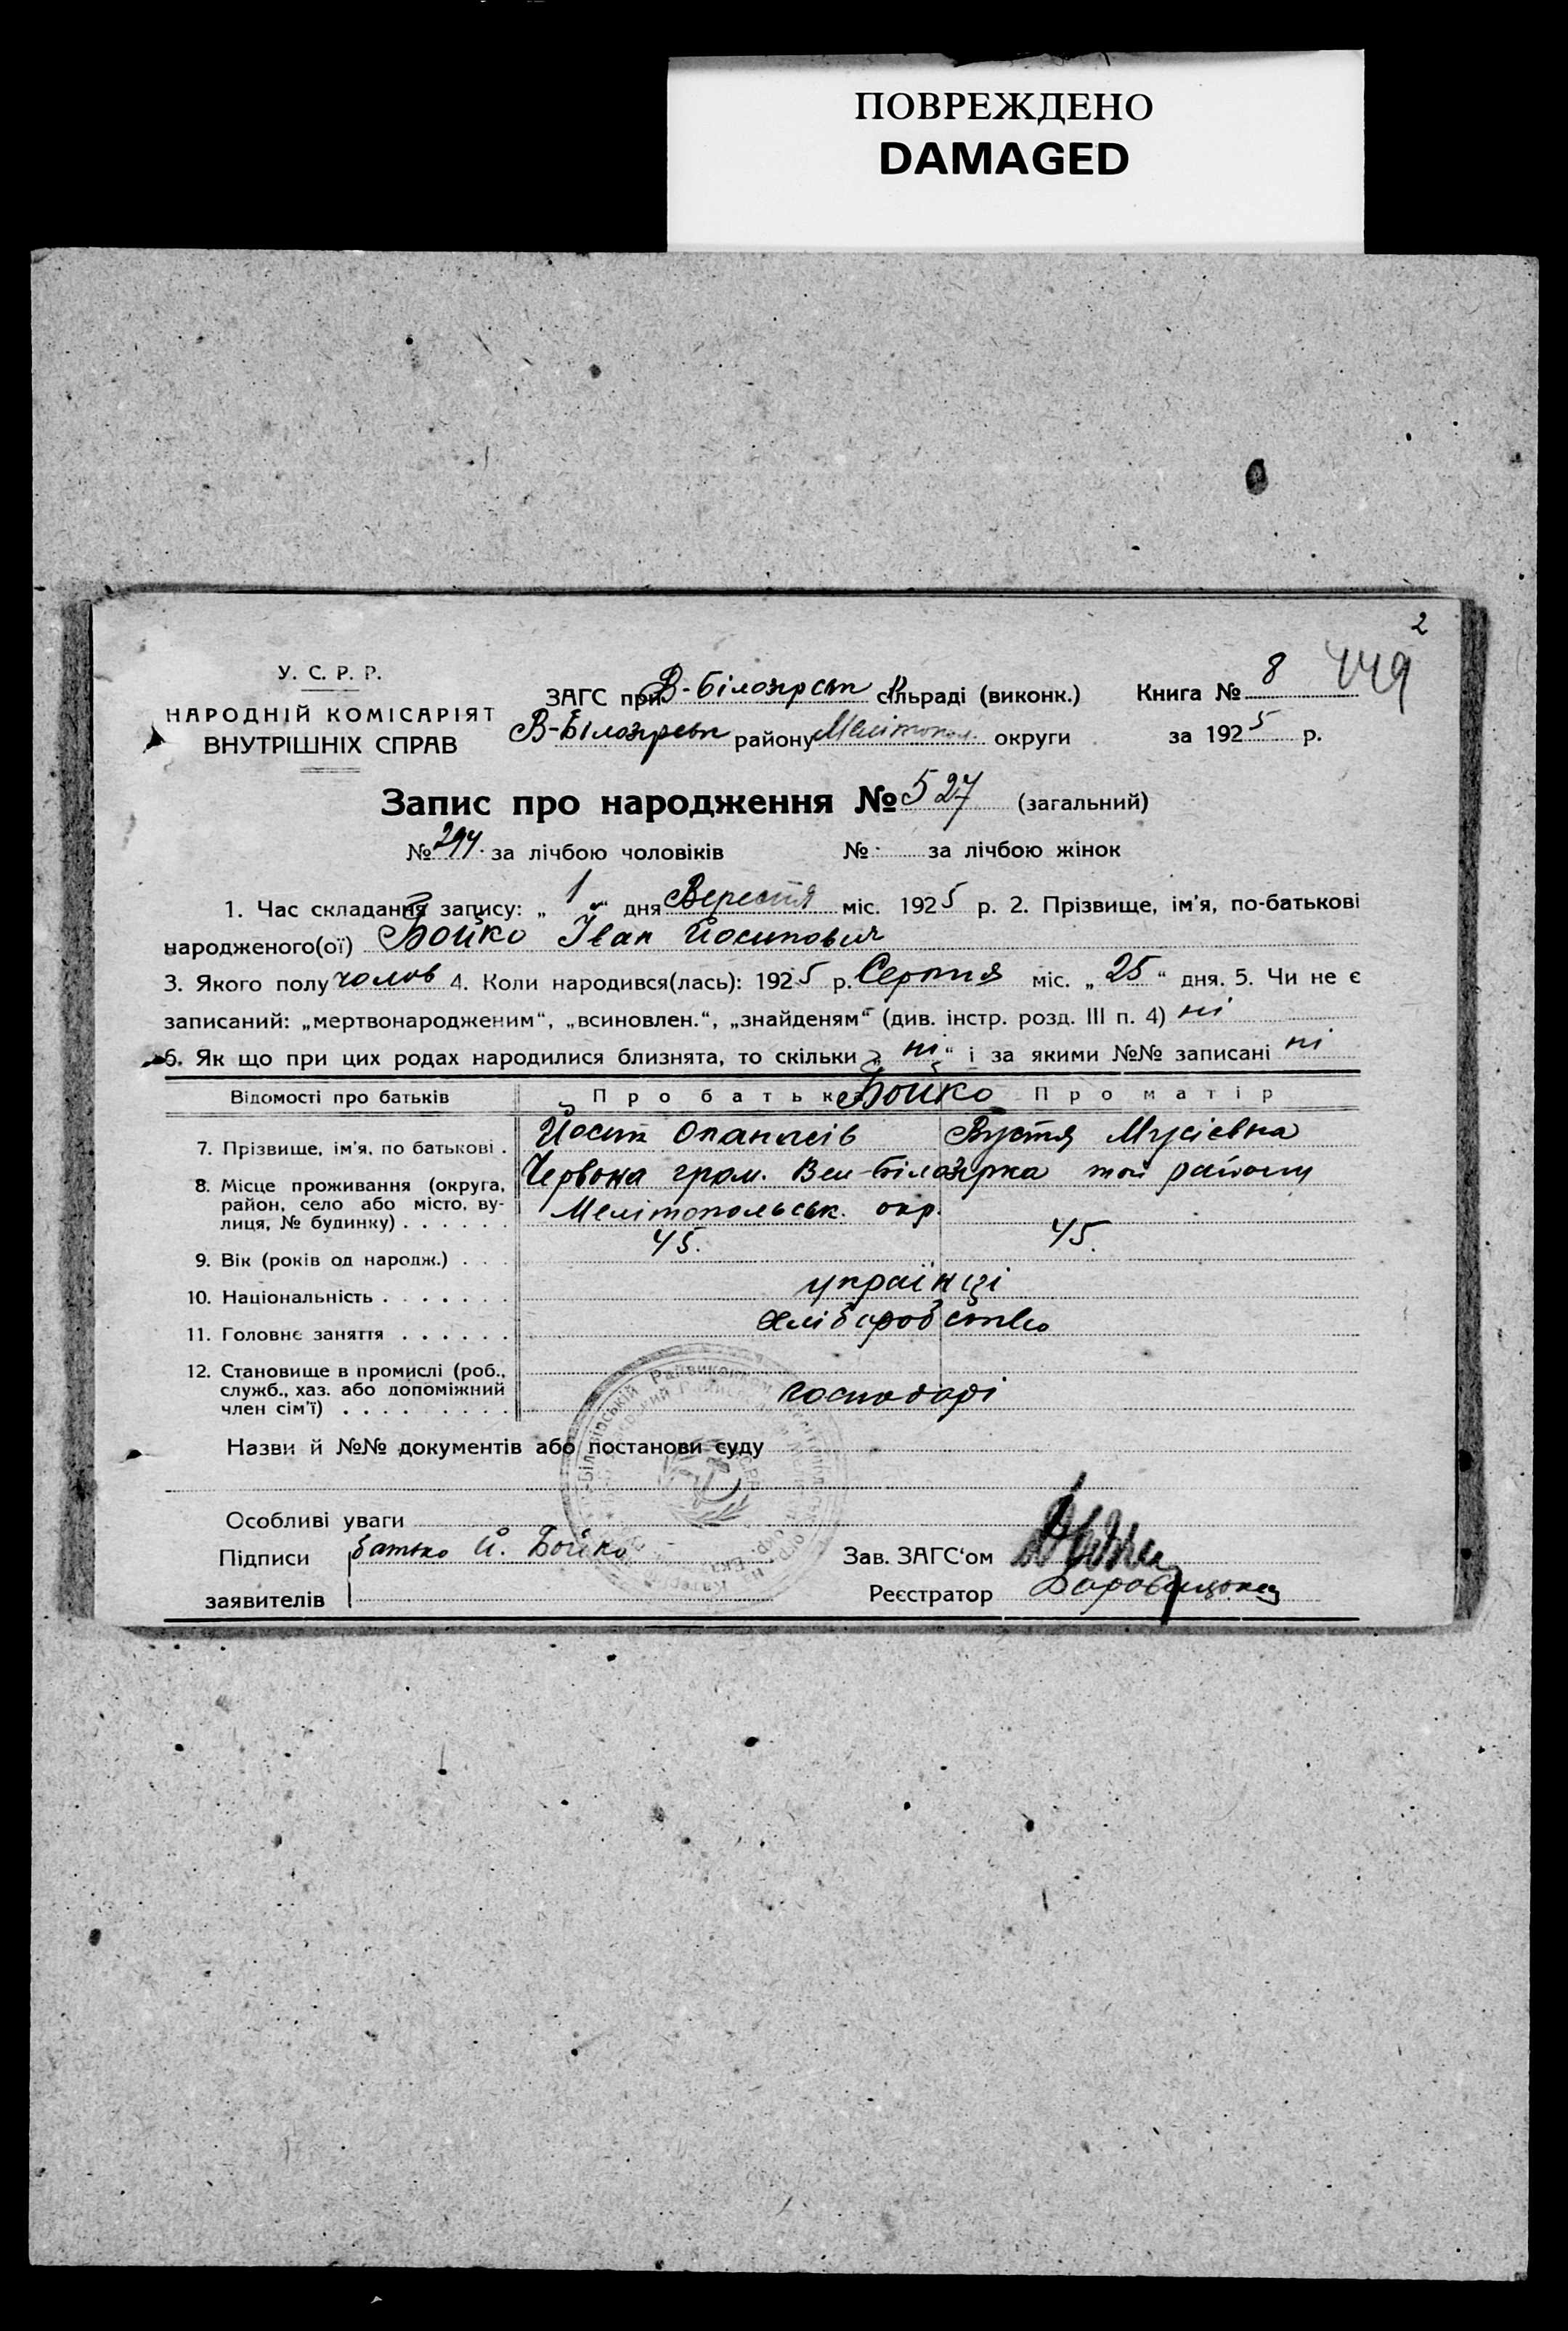 ПОВРЕЖДЕНО
DAMAGED
2
У. С. Р. Р.
НАРОДНІЙ КОМІСАРІЯТ
ВНУТРІШНІХ СПРАВ
ЗАГС при В-Білозірськ сільраді (виконк.) Книга № 8 449
В-Білозірськ району Мелітопол. округи за 1925 р.
Запис про народження № 527 (загальний)
№ 294. за лічбою чоловіків № за лічбою жінок
1. Час складання запису: „ 1 “ дня Вересня міс. 1925 р. 2. Прізвище, ім'я, по-батькові
народженого(ої) Бойко Іван Йосипович
3. Якого полу чолов 4. Коли народився(лась): 1925 р. Серпня міс. „ 25 “ дня. 5. Чи не є
записаний: „мертвонародженим“, „всиновлен.“, „знайденям“ (див. інстр. розд. III п. 4) ні
6. Як що при цих родах народилися близнята, то скільки „ ні “ і за якими №№ записані ні
Відомості про батьків Про батька Бойко Про матір
7. Прізвище, ім'я, по батькові . Йосип Опанасів Вустя Мусієвна
8. Місце проживання (округа, район, село або місто, вулиця, № будинку) . . . . . . Червона гром. Вел-Білозірка той району
Мелітопольськ. окр.
9. Вік (років од народж.) . . . 45. 45.
10. Національність . . . . . . . українці
11. Головне заняття . . . . . . хліборобство
12. Становище в промислі (роб., служб., хаз. або допоміжний член сім'ї) . . . . . . . . . господарі
Назви й №№ документів або постанови суду
Особливі уваги
Підписи батько Й. Бойко Зав. ЗАГС'ом
заявителів Реєстратор